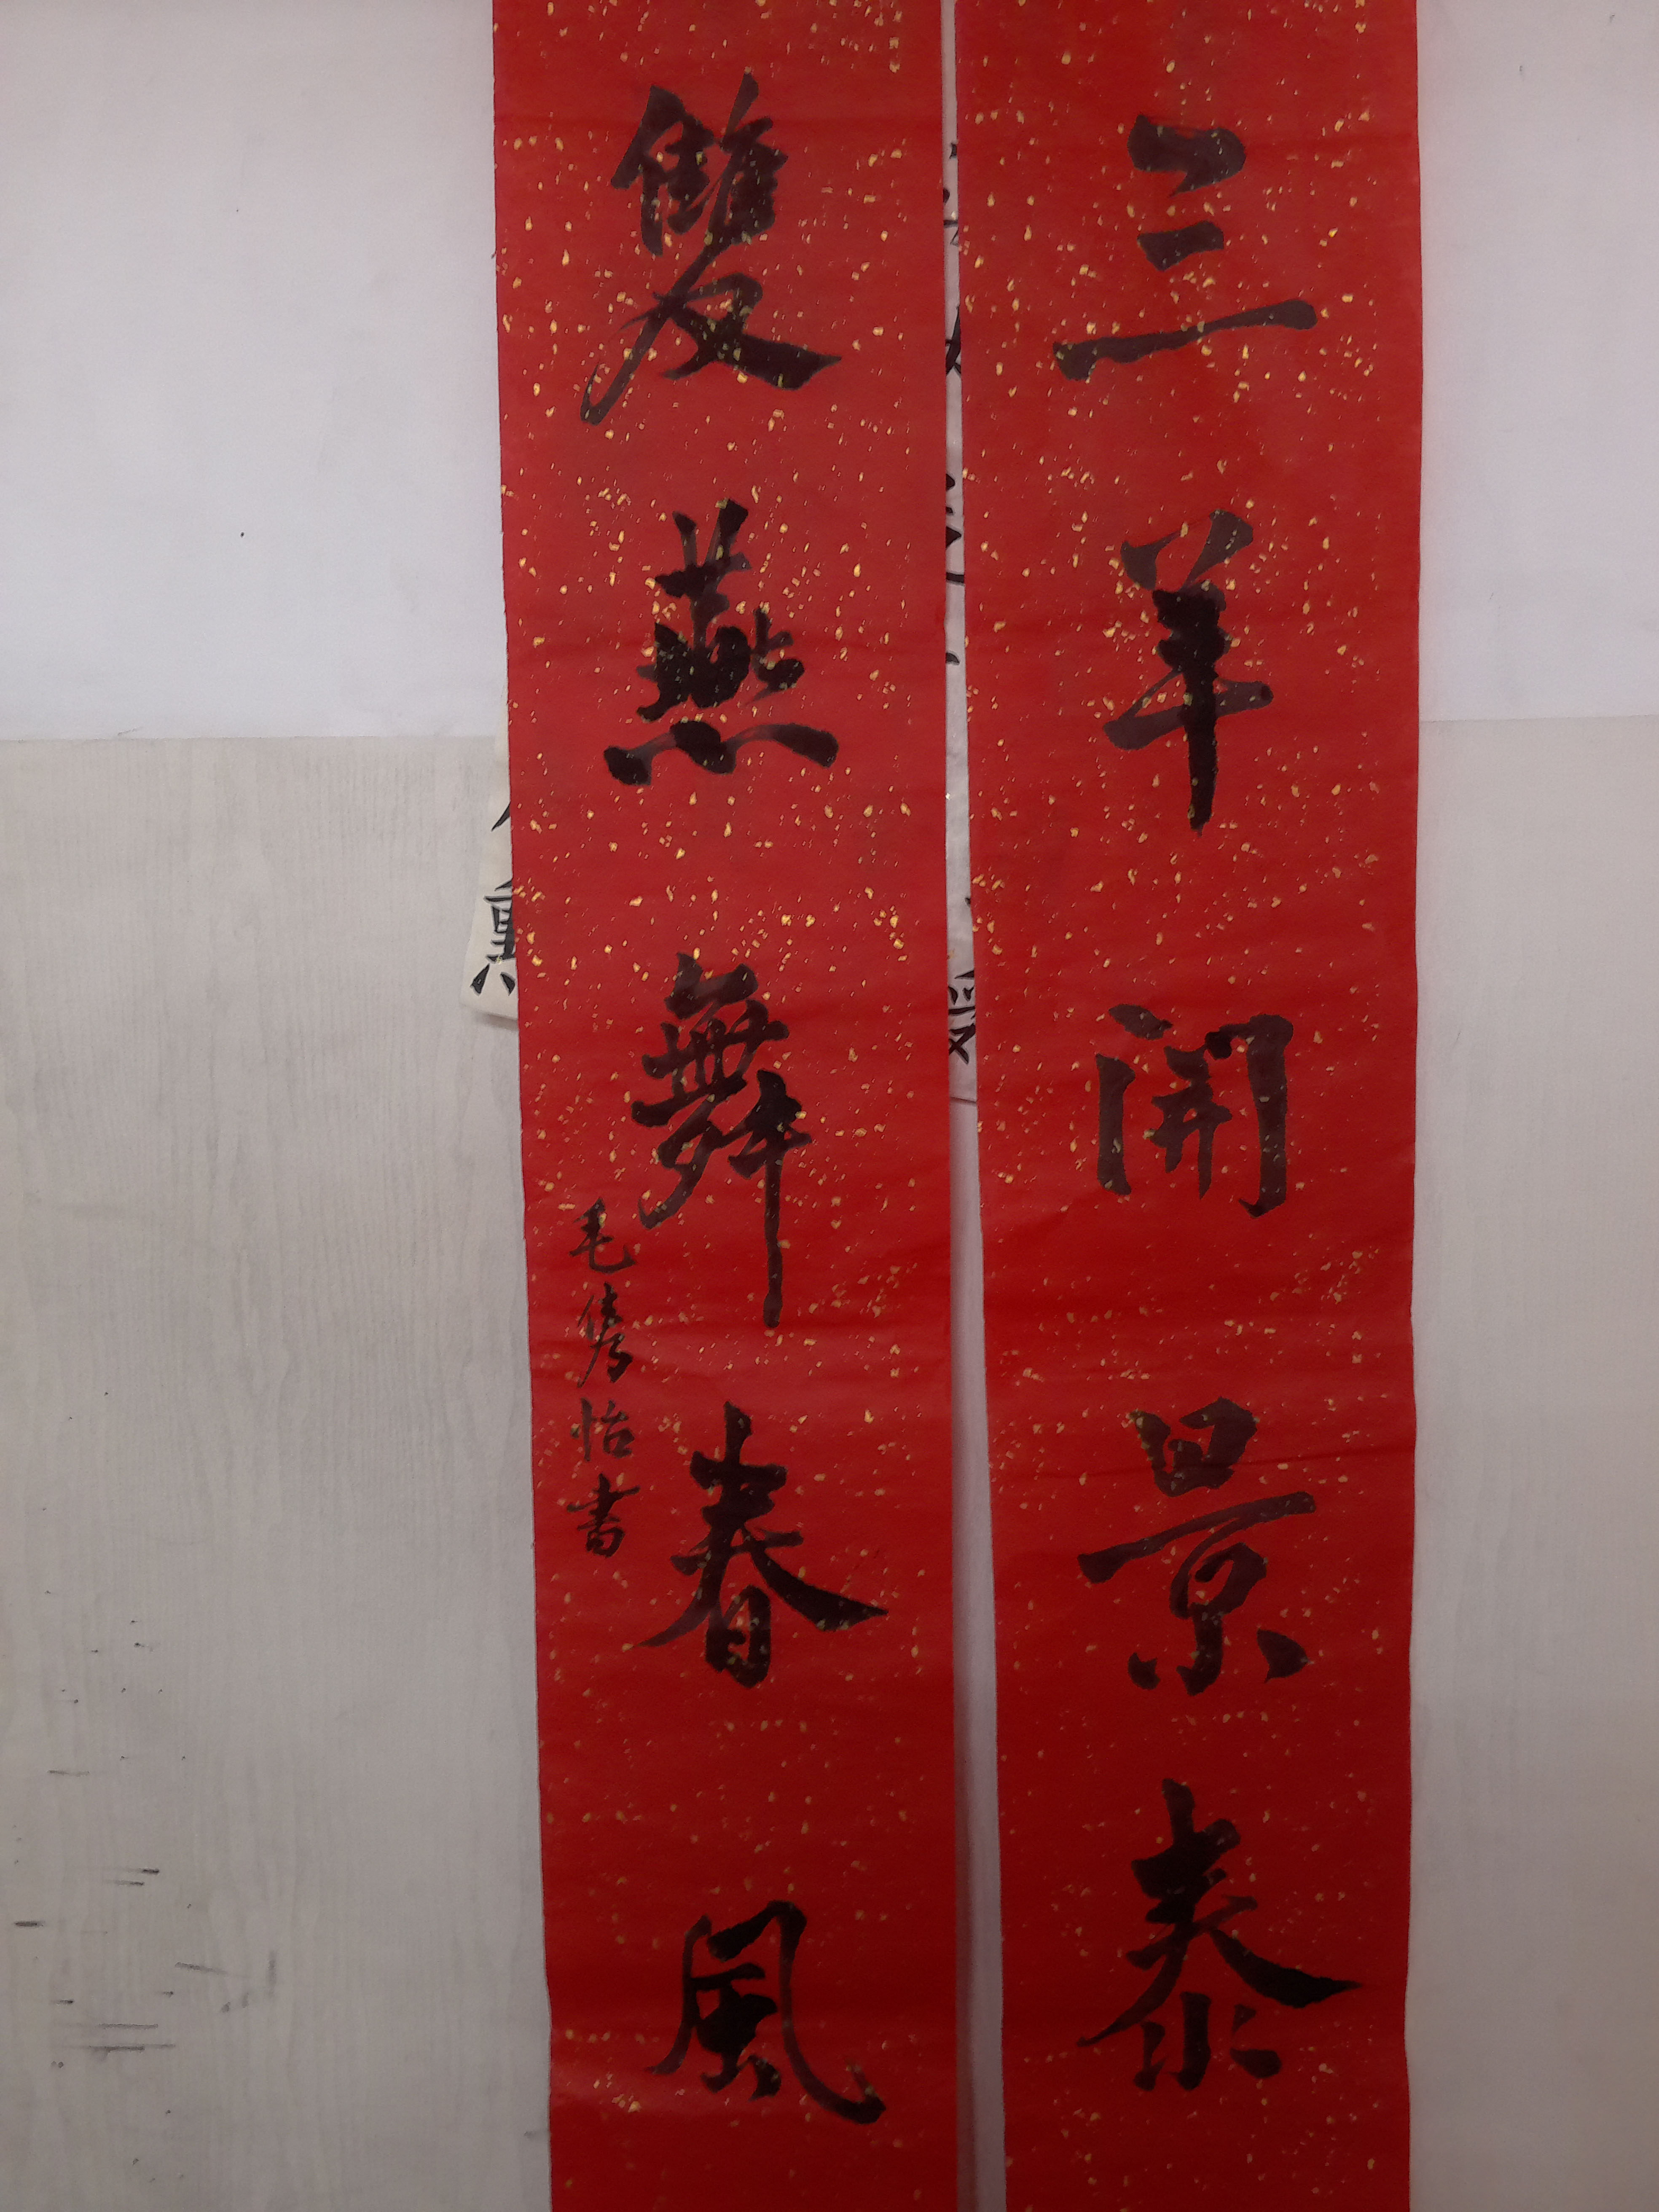 三羊開景泰
雙燕舞春風
毛雋怡書